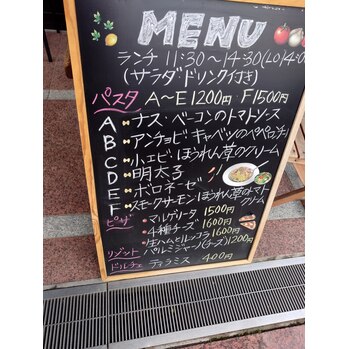 MENU
ランチ 11:30～14:30(LO14:0
(サラダドリンク付き)
パスタ A～E 1200円 F1500円
A ナス・ベーコンのトマトソース
B アンチョビ キャベツのペペロンチ
C 小エビ ほうれん草のクリーム
D 明太子
E ボロネーゼ
F スモークサーモン ほうれん草のトマトクリーム
ピザ ・マルゲリータ 1500円
・4種チーズ 1600円
・生ハムとルッコラ 1600円
リゾット パルミジャーノ(チーズ) 1200円
ドルチェ ティラミス 400円